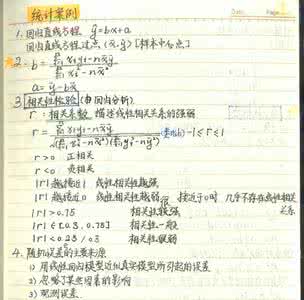 统计案例
1. 回归直线方程 ŷ=bx+a
回归直线方程过点 (x̄,ȳ) [样本中心点]
2. b = Σxiyi-nx̄ȳ / Σxi²-nx̄²
a = ȳ-bx̄
3. 相关性检验 (由回归分析)
r:相关系数 描述线性相关关系的强弱
r = Σxiyi-nx̄ȳ / √(Σxi²-nx̄²)(Σyi²-nȳ²) -1≤r≤1
r>0 正相关
r<0 负相关
|r|越接近1 线性相关性越强
|r|越接近0 线性相关性越弱 接近于0时 几乎不存在线性相关
关系
|r|>0.75 相关性较强
|r|∈[0.3,0.75] 相关性一般
|r|<0.25/0.3 相关性很弱
4. 随机误差的主要来源
1) 用线性回归模型近似真实模型所引起的误差
2) 忽略了某些因素的影响
3) 观测误差